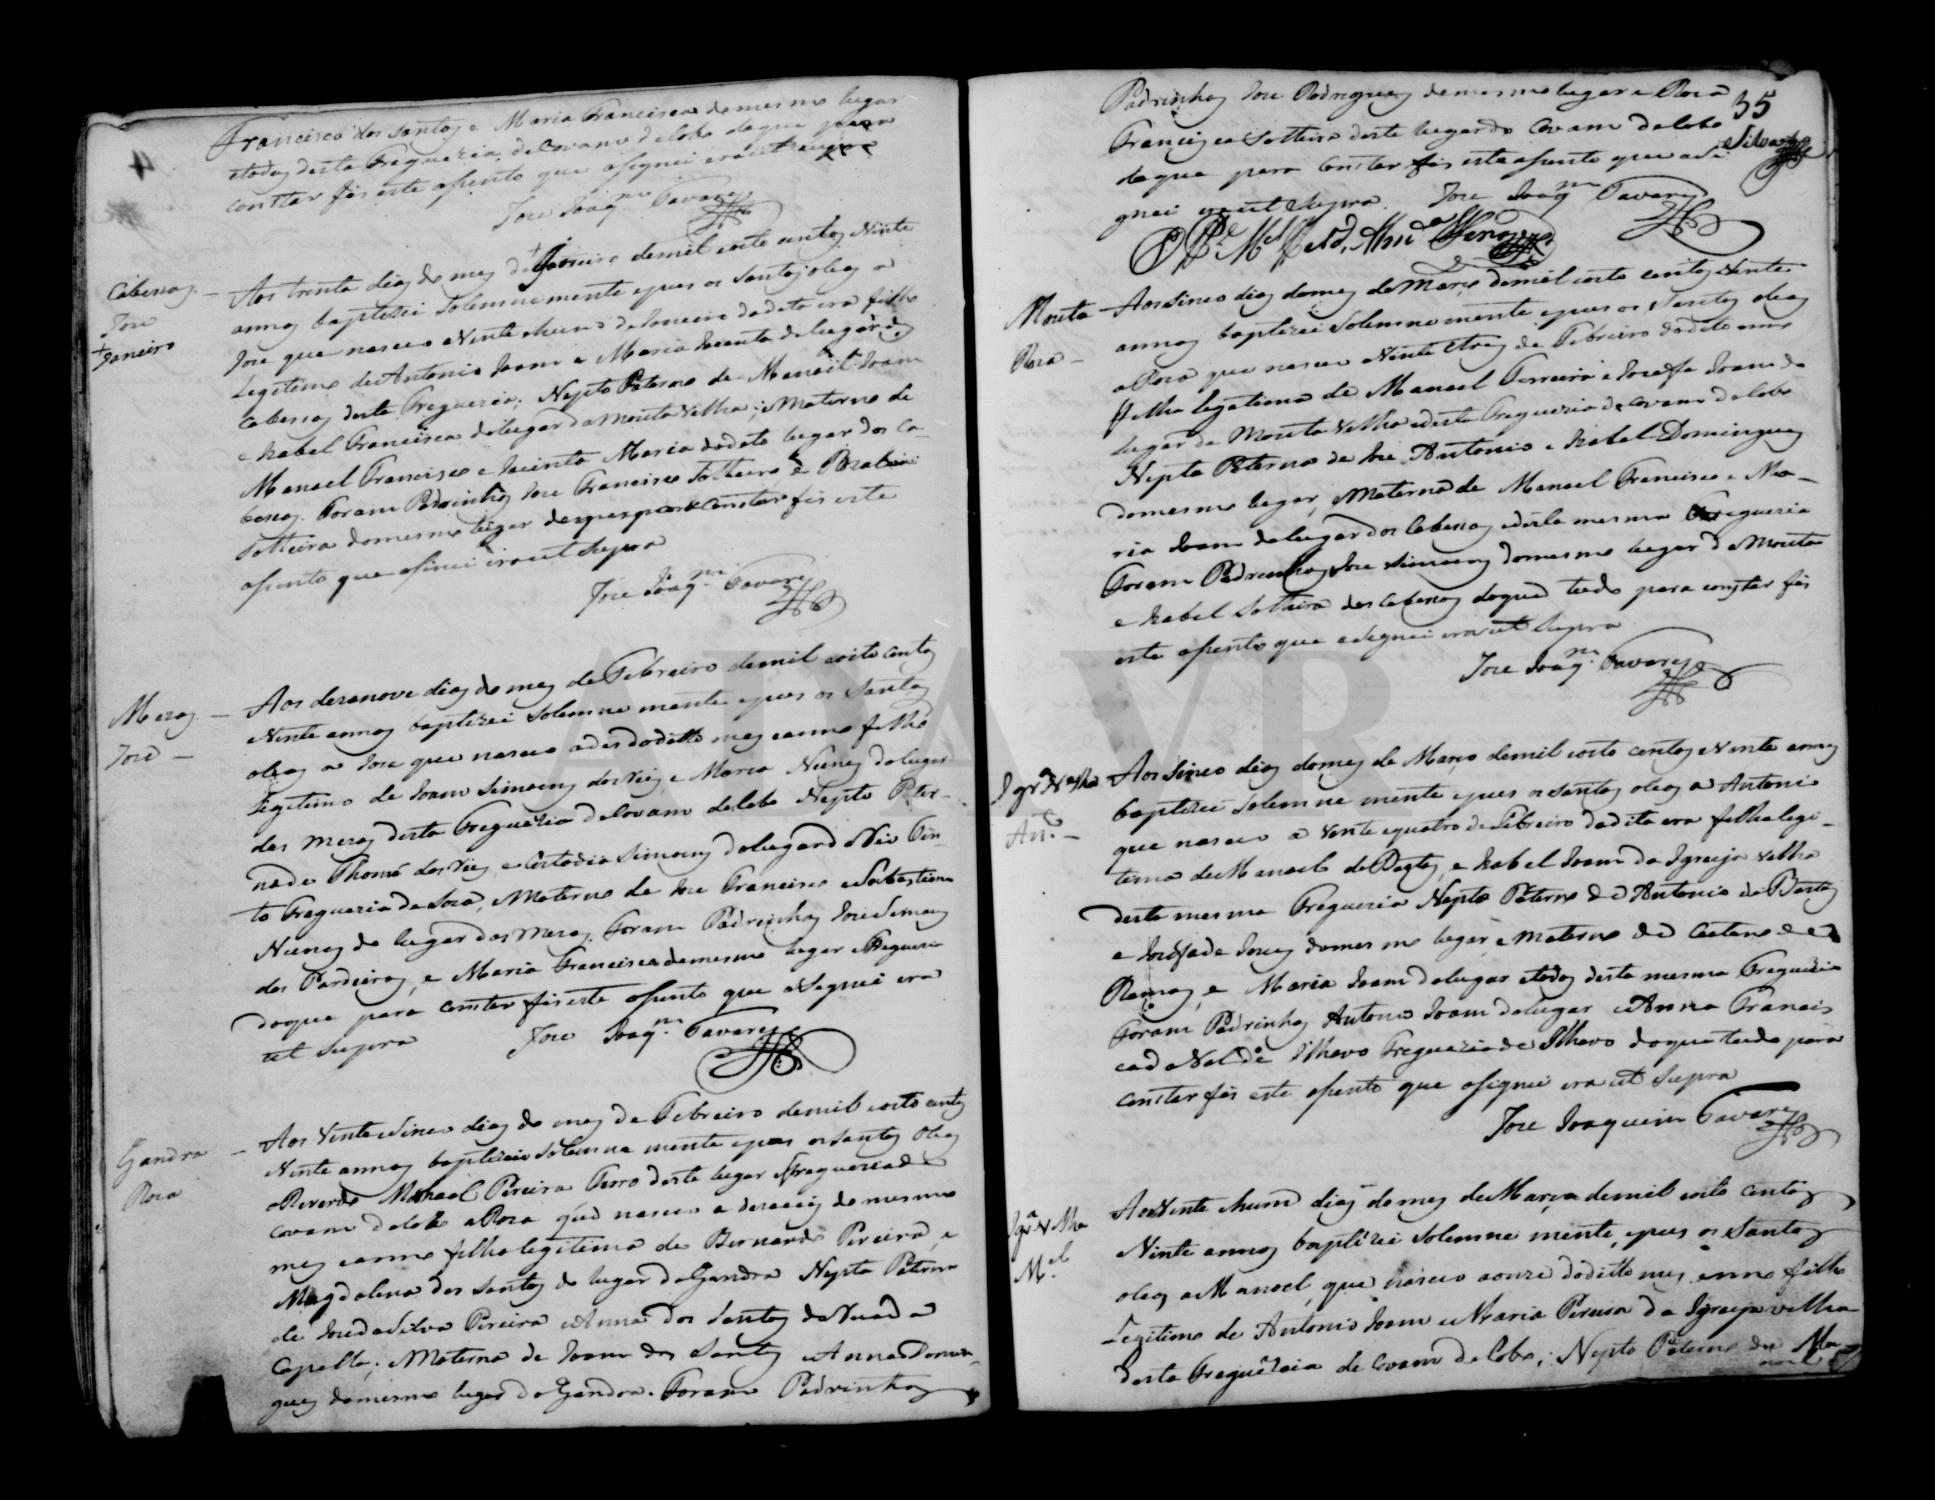 4
Francisco dos Santos e Maria Francisca do mesmo lugar
e todos desta Freguezia de Covam do Lobo do que para
constar fis este asento que asignei era ut supra
Joze Joaqm Tavares
Cabesos
Joze
+ Janeiro
Aos trinta dias do mes de Janeiro de mil oito centos e Vinte
annos baptizei Solemnemente e pus os Santos oleos a
Joze que nasceo a Vinte e hum de Janeiro da dita era filho
Legitimo de Antonio Joam e Maria Jacinta do lugar dos
Cabesos desta Freguezia; Nepto Paterno de Manoel Joam
e Izabel Francisca do lugar da Mouta Velha; e Materno de
Manoel Francisco e Jacinta Maria do dito lugar dos Ca-
besos. Foram Padrinhos Joze Francisco Solteiro, e
Solteira do mesmo lugar do que para constar fis este
asento que asinei era ut supra
Joze Joaqm. Tavares
Mezas
Joze
Aos dezanove dias do mes de Febreiro de mil e oito centos
e Vinte annos baptizei Solemnemente e pus os Santos
oleos a Joze que nasceo a des do ditto mes e anno filho
Legitimo de Joam Simoens dos Reis, e Maria Nunes do lugar
das Mezas desta Freguezia de Covam do Lobo Nepto Pater-
no de Thomé dos Reis, e Custodia Simoens do lugar de Rio Tin-
to Freguezia de Soza, e Materno de Joze Francisco e Sebastiana
Nunes do lugar das Mezas. Foram Padrinhos Joze Simoens
dos Pardieiros, e Maria Francisca do mesmo lugar e Freguezia
do que para constar fis este asento que asignei era
ut supra
Joze Joaqm. Tavares
Gandra
Roza
Aos Vinte e Sinco dias do mes de Febreiro de mil e oito centos
e Vinte annos baptizou Solemnemente e pos os Santos oleos
o Reverendo Manoel Pereira Ferro deste lugar e Freguezia de
Covam do Lobo a Roza que nasceo a dezaseis do mesmo
mes e anno filha legitima de Bernardo Pereira, e
Magdalena dos Santos do lugar da Gandra Nepta Paterna
de Joze da Silva Pereira e Anna dos Santos da
Capella; e Materna de Joam dos Santos e Anna Domin-
gues do mesmo lugar da Gandra. Foram Padrinhos
35
Padrinhos Joze Rodrigues do mesmo lugar e Roza
Francisca Solteira deste lugar do Covam do Lobo
do que para constar fis este asento que asi
gnei era ut supra. Joze Joaqm Tavares
Silva
Mouta
Roza
Aos Sinco dias do mes de Março de mil e oito centos e Vinte
annos baptizei Solemnemente e pus os Santos oleos
a Roza que nasceo a Vinte e tres de Febreiro do dito anno
filha legitima de Manoel Ferreira e Josefa Joam do
lugar da Mouta Velha e desta Freguezia de Covam do Lobo
Nepta Paterna de Joze Antonio e Izabel Domingues
do mesmo lugar, e Materna de Manoel Francisco e Ma-
ria Joam do lugar dos Cabesos e desta mesma Freguezia
Foram Padrinhos Joze Simoens do mesmo lugar da Mouta
e Izabel Solteira dos Cabesos do que tudo para constar fis
este asento que asignei era ut supra
Joze Joaqm. Tavares
Igra Velha
Anto.
Aos Sinco dias do mes de Março de mil e oito centos e Vinte annos
baptizei Solemnemente e pus os Santos oleos a Antonio
que nasceo a Vinte e quatro de Febreiro da dita era filho legi-
timo de Manoel de Bastos, e Izabel Joam da Igreija Velha
desta mesma Freguezia Nepto Paterno de Antonio de Bastos
e Josefa de Jezus do mesmo lugar, e Materno de Caetano de
Ramos, e Maria Joam do lugar e todos desta mesma Freguezia
Foram Padrinhos Antonio Joam do lugar e Anna Francis
ca de Ilhavo Freguezia de Ilhavo do que tudo para
constar fis este asento que asignei era ut supra
Joze Joaquim Tavares
Igra Velha
Mel
Aos Vinte e hum dias do mes de Março de mil e oito centos e
Vinte annos baptizei Solemnemente, e pus os Santos
oleos a Manoel, que nasceo a onze do ditto mes e anno filho
Legitimo de Antonio Joam e Maria Pereira da Igreija velha
desta Freguezia de Covam do Lobo; Nepto Paterno de Ma-
noel
ADAVR